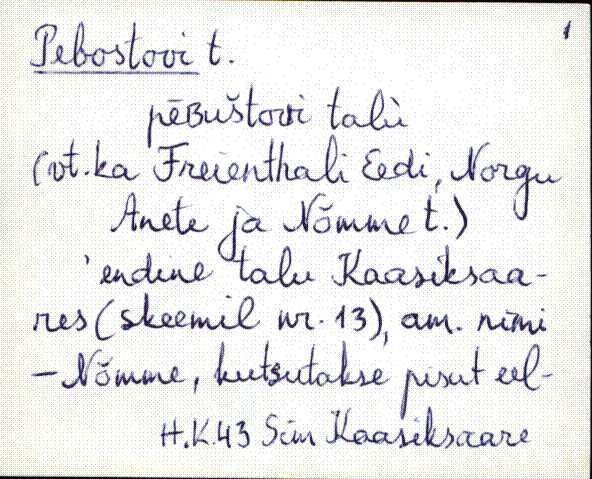 1
Pebostovi t.
pēʙuštovi talù
(vt. ka Freienthali Eedi, Norgu
Anete ja Nõmme t.)
'endine talu Kaasiksaa-
res (skeemil nr. 13), am. nimi
- Nõmme, kutsutakse pisut eel-
H.K.43 Sim Kaasiksaare